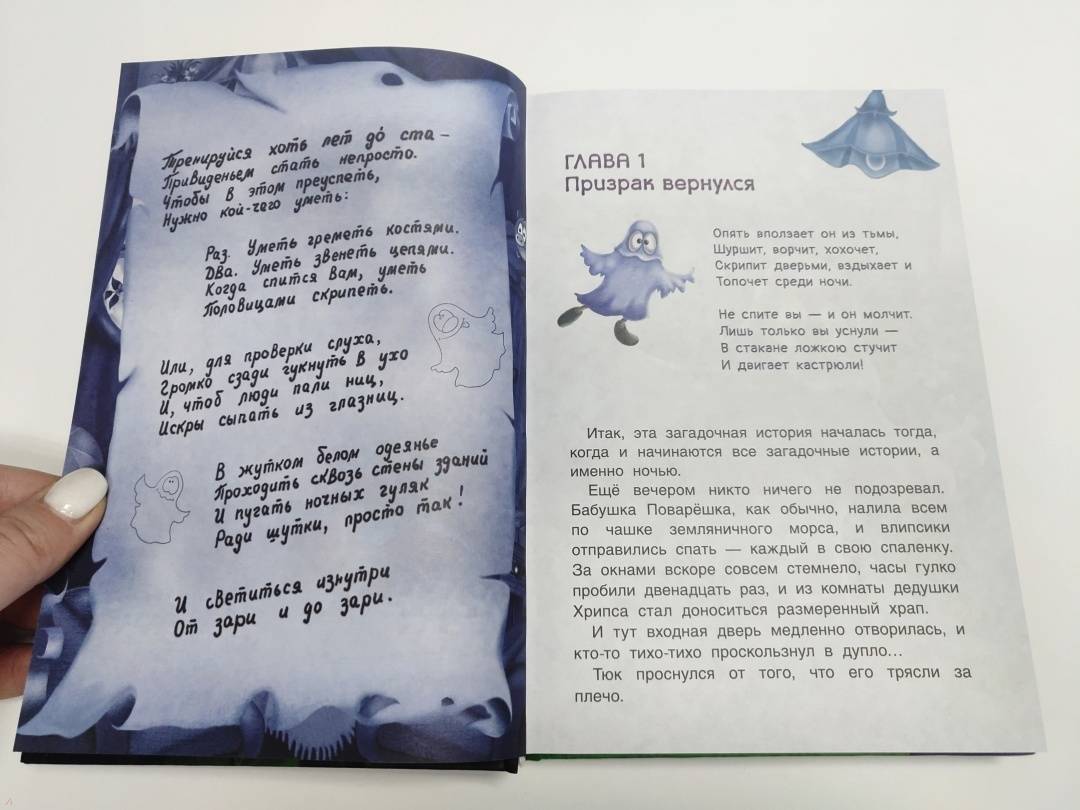 Тренируйся хоть лет до ста –
Привиденьем стать непросто.
Чтобы в этом преуспеть,
Нужно кой-чего уметь:
Раз. Уметь греметь костями.
Два. Уметь звенеть цепями.
Когда спится вам, уметь
Половицами скрипеть.
Или, для проверки слуха,
Громко сзади гукнуть в ухо
И, чтоб люди пали ниц,
Искры сыпать из глазниц.
В жутком белом одеянье
Проходить сквозь стены зданий
И пугать ночных гуляк
Ради шутки, просто так!
И светиться изнутри
От зари и до зари.
ГЛАВА 1
Призрак вернулся
Опять вползает он из тьмы,
Шуршит, ворчит, хохочет,
Скрипит дверьми, вздыхает и
Топочет среди ночи.
Не спите вы — и он молчит.
Лишь только вы уснули —
В стакане ложкою стучит
И двигает кастрюли!
Итак, эта загадочная история началась тогда,
когда и начинаются все загадочные истории, а
именно ночью.
Ещё вечером никто ничего не подозревал.
Бабушка Поварёшка, как обычно, налила всем
по чашке земляничного морса, и влипсики
отправились спать — каждый в свою спаленку.
За окнами вскоре совсем стемнело, часы гулко
пробили двенадцать раз, и из комнаты дедушки
Хрипса стал доноситься размеренный храп.
И тут входная дверь медленно отворилась, и
кто-то тихо-тихо проскользнул в дупло...
Тюк проснулся от того, что его трясли за
плечо.